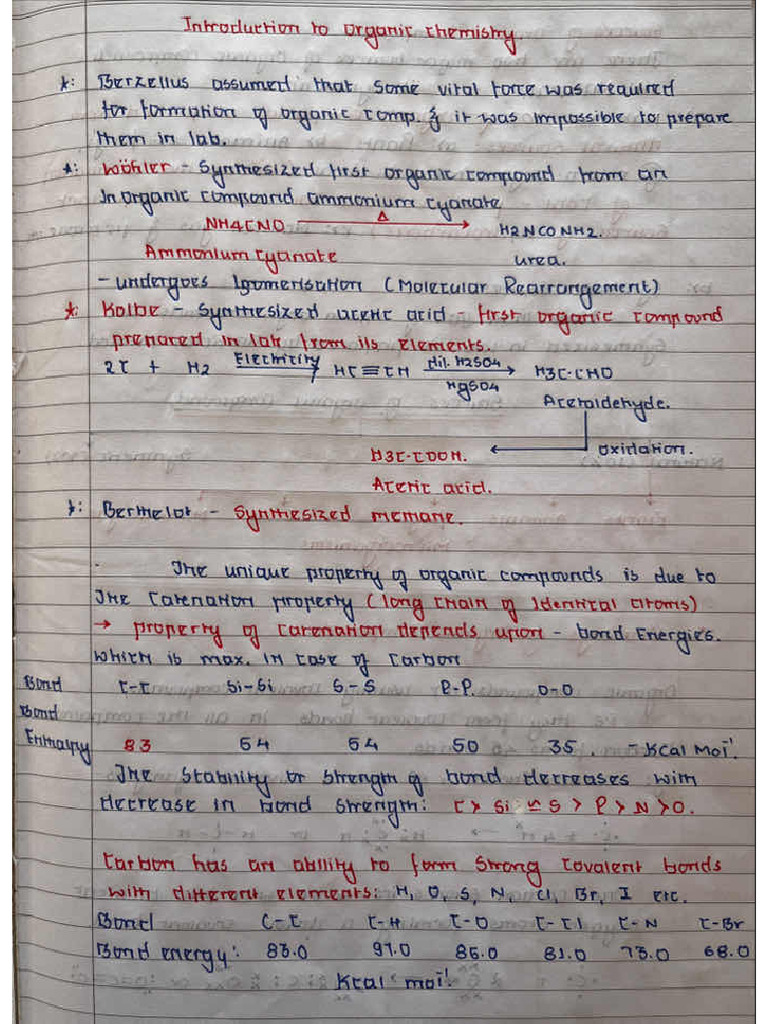 Introduction to organic chemistry.
*: Berzellus assumed that some vital force was required
for formation of organic comp. & it was impossible to prepare
them in lab.
*: Wöhler - Synthesized first organic compound from an
Inorganic compound ammonium cyanate
NH4CNO Δ → H2NCONH2.
Ammonium cyanate urea.
- undergoes Isomerisation (Molecular Rearrangement)
*: Kolbe - synthesized acetic acid - first organic compound
prepared in lab from its elements.
2C + H2 Electricity → HC≡CH dil. H2SO4 → H3C-CHO
HgSO4
Acetaldehyde.
H3C-COOH. ← oxidation.
Acetic acid.
*: Berthelot - Synthesized methane.
The unique property of organic compounds is due to
The Catenation property (long chain of Identical atoms)
→ property of catenation depends upon - bond Energies.
which is max. in case of Carbon
Bond C-C Si-Si S-S P-P. O-O
Bond
Enthalpy 83 54 54 50 35. - Kcal Mol⁻¹.
The stability or strength of bond decreases with
decrease in bond strength: C > Si ≃ S > P > N > O.
Carbon has an ability to form Strong Covalent bonds
with different elements: H, O, S, N, Cl, Br, I etc.
Bond C-C C-H C-O C-Cl C-N C-Br
Bond energy: 83.0 97.0 86.0 81.0 73.0 68.0
Kcal mol⁻¹.